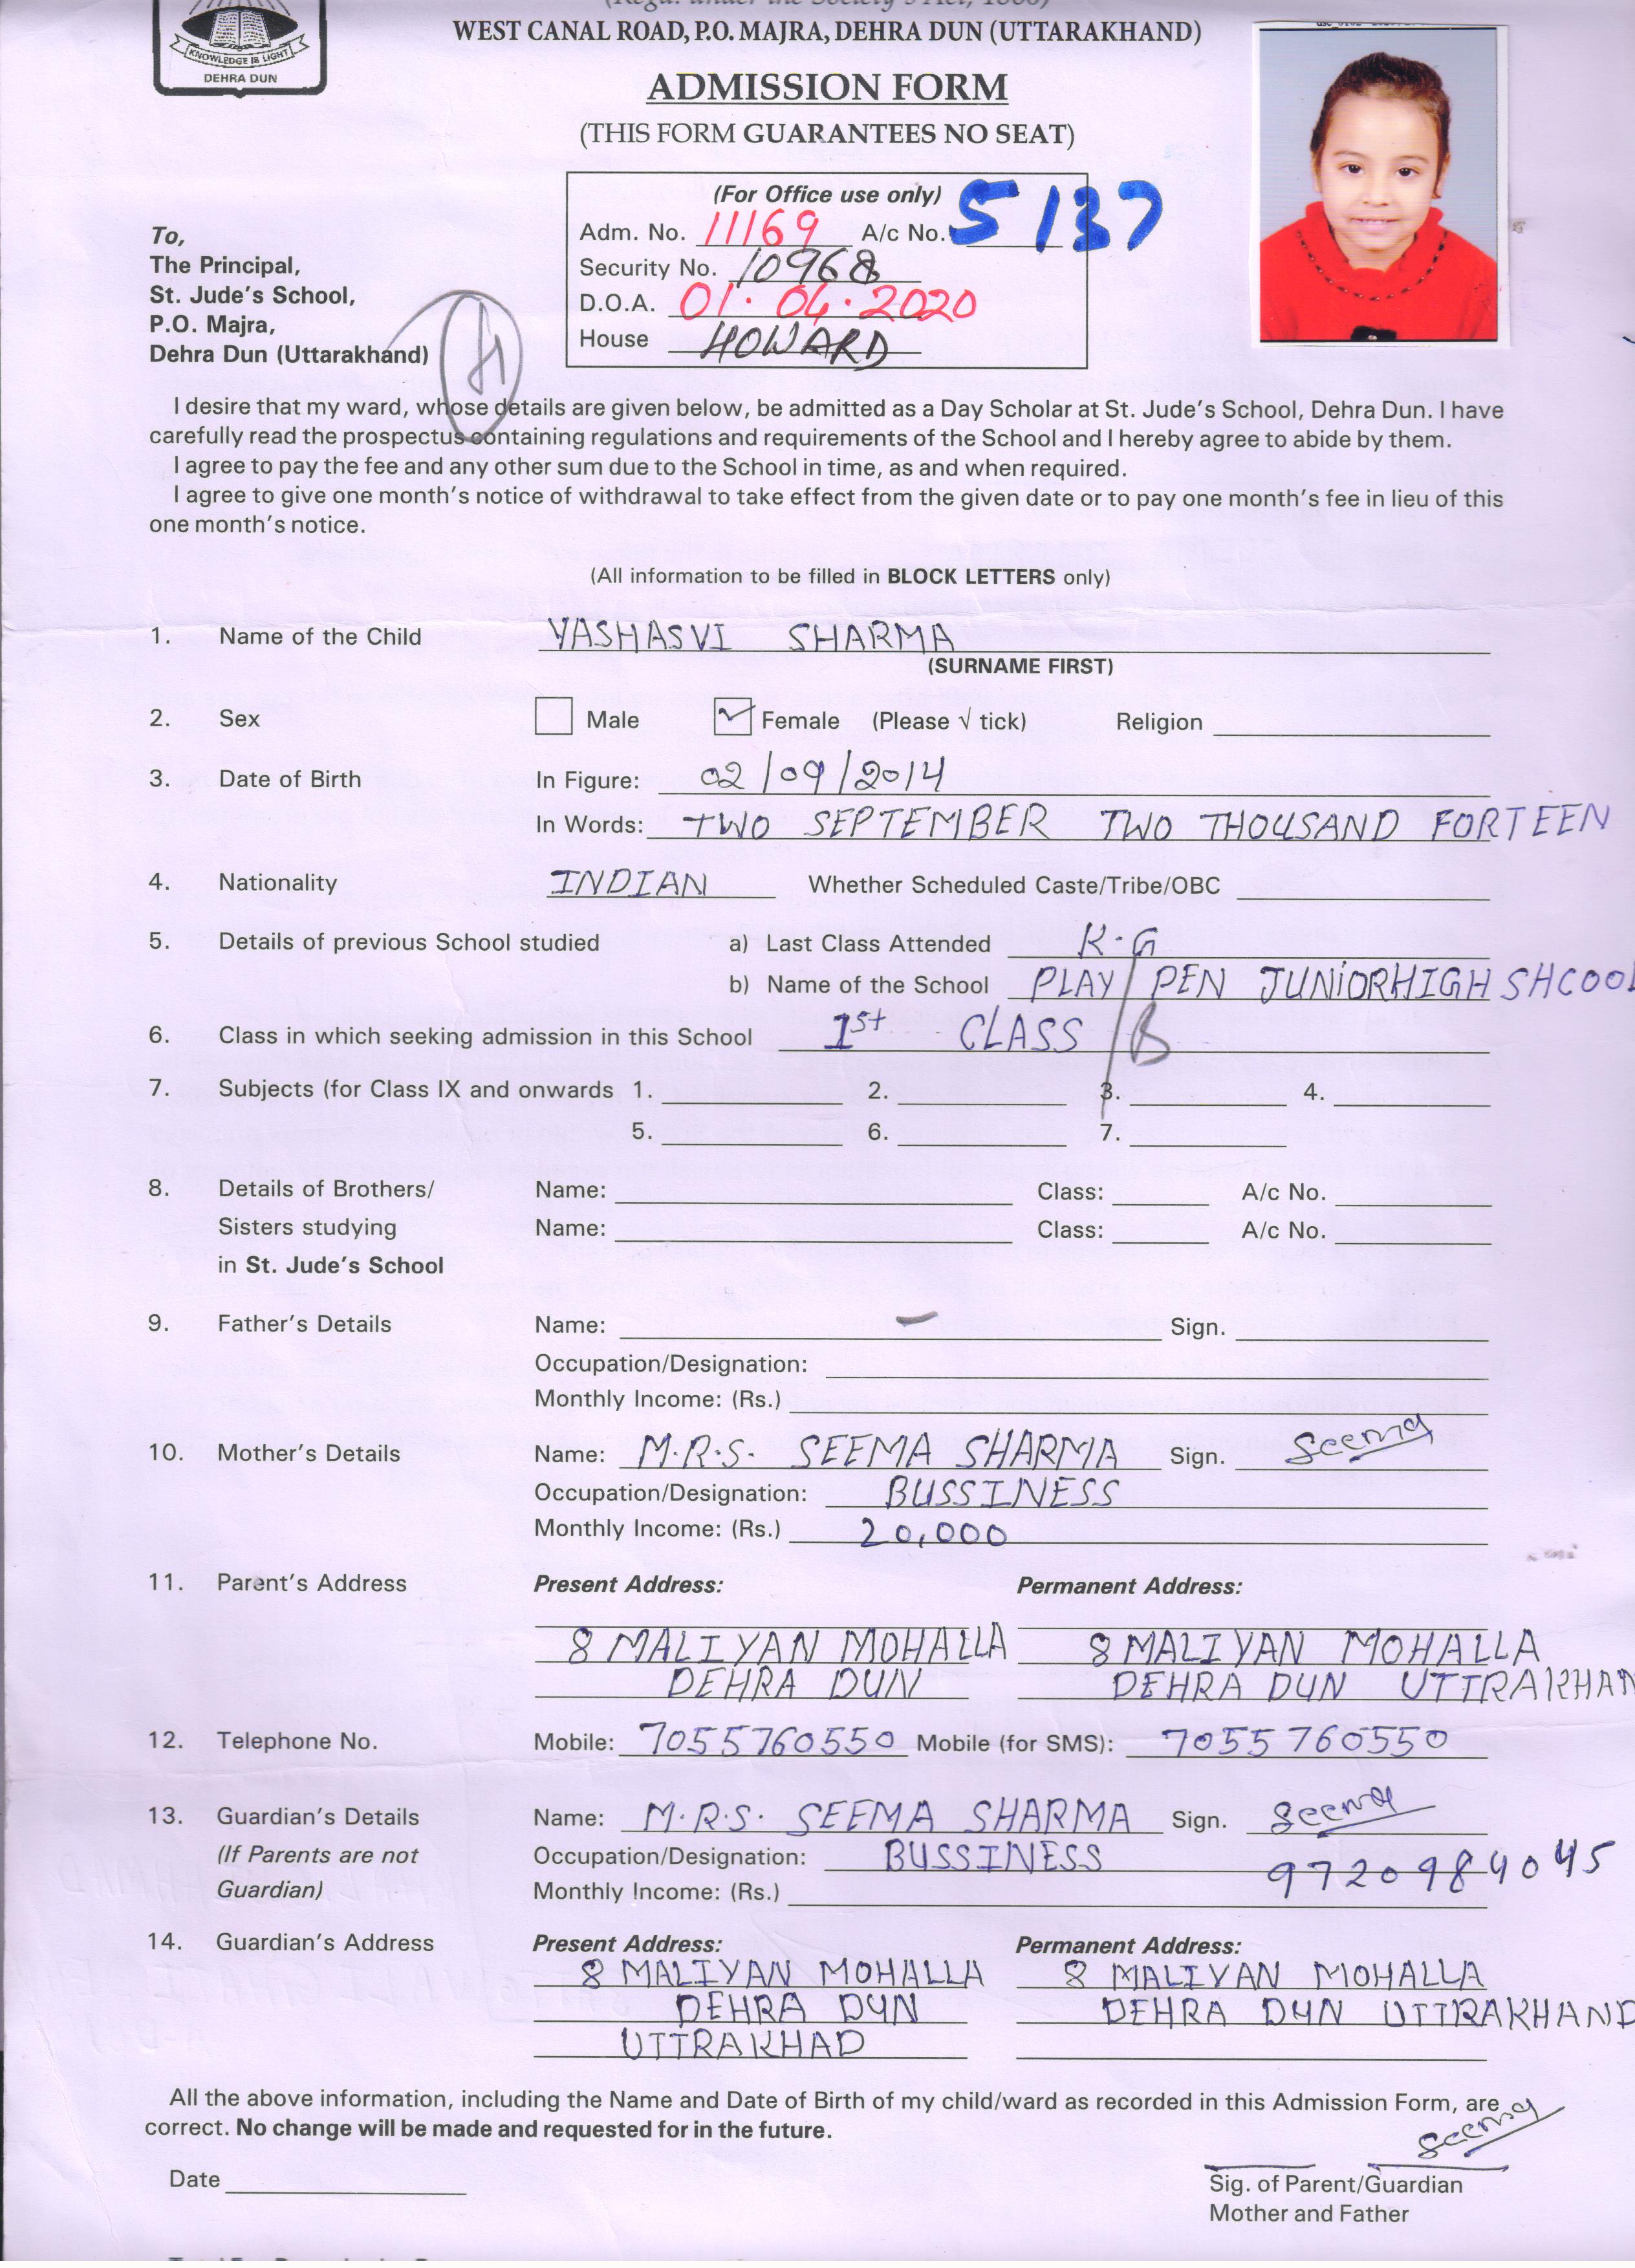 (Regd. under the Society's Act, 1860)
WEST CANAL ROAD, P.O. MAJRA, DEHRA DUN (UTTARAKHAND)
KNOWLEDGE IS LIGHT
DEHRA DUN
ADMISSION FORM
(THIS FORM GUARANTEES NO SEAT)
(For Office use only)
Adm. No. 11169 A/c No. 5137
Security No. 10968
D.O.A. 01.04.2020
House HOWARD
To,
The Principal,
St. Jude's School,
P.O. Majra,
Dehra Dun (Uttarakhand)
I desire that my ward, whose details are given below, be admitted as a Day Scholar at St. Jude's School, Dehra Dun. I have
carefully read the prospectus containing regulations and requirements of the School and I hereby agree to abide by them.
I agree to pay the fee and any other sum due to the School in time, as and when required.
I agree to give one month's notice of withdrawal to take effect from the given date or to pay one month's fee in lieu of this
one month's notice.
(All information to be filled in BLOCK LETTERS only)
1. Name of the Child YASHASVI SHARMA
(SURNAME FIRST)
2. Sex Male Female (Please √ tick) Religion
3. Date of Birth In Figure: 02/09/2014
In Words: TWO SEPTEMBER TWO THOUSAND FORTEEN
4. Nationality INDIAN Whether Scheduled Caste/Tribe/OBC
5. Details of previous School studied a) Last Class Attended K.G
b) Name of the School PLAY PEN JUNIORHIGH SHCOOL
6. Class in which seeking admission in this School 1st CLASS /B
7. Subjects (for Class IX and onwards 1. 2. 3. 4.
5. 6. 7.
8. Details of Brothers/ Name: Class: A/c No.
Sisters studying Name: Class: A/c No.
in St. Jude's School
9. Father's Details Name: – Sign.
Occupation/Designation:
Monthly Income: (Rs.)
10. Mother's Details Name: M.R.S. SEEMA SHARMA Sign. Seema
Occupation/Designation: BUSSINESS
Monthly Income: (Rs.) 20,000
11. Parent's Address Present Address: Permanent Address:
8 MALIYAN MOHALLA 8 MALIYAN MOHALLA
DEHRA DUN DEHRA DUN UTTRAKHAN
12. Telephone No. Mobile: 7055760550 Mobile (for SMS): 7055760550
13. Guardian's Details Name: M.R.S. SEEMA SHARMA Sign. Seema
(If Parents are not Occupation/Designation: BUSSINESS 9720984045
Guardian) Monthly Income: (Rs.)
14. Guardian's Address Present Address: Permanent Address:
8 MALIYAN MOHALLA 8 MALIYAN MOHALLA
DEHRA DUN DEHRA DUN UTTRAKHAND
UTTRAKHAD
All the above information, including the Name and Date of Birth of my child/ward as recorded in this Admission Form, are
correct. No change will be made and requested for in the future.
Seema
Date
Sig. of Parent/Guardian
Mother and Father